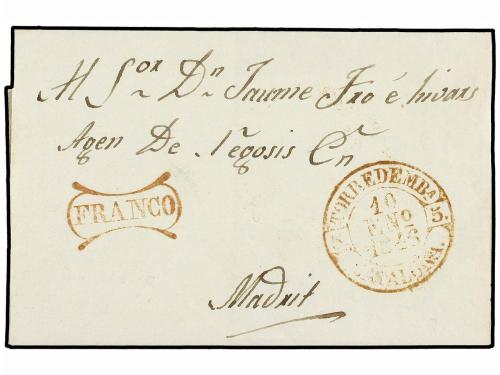 Al Sor Dn Jaume Fró é hivars
Agen De Negosis Cn
FRANCO
TORREDEMBA
10
ENO
CATALUÑA.
Madrit